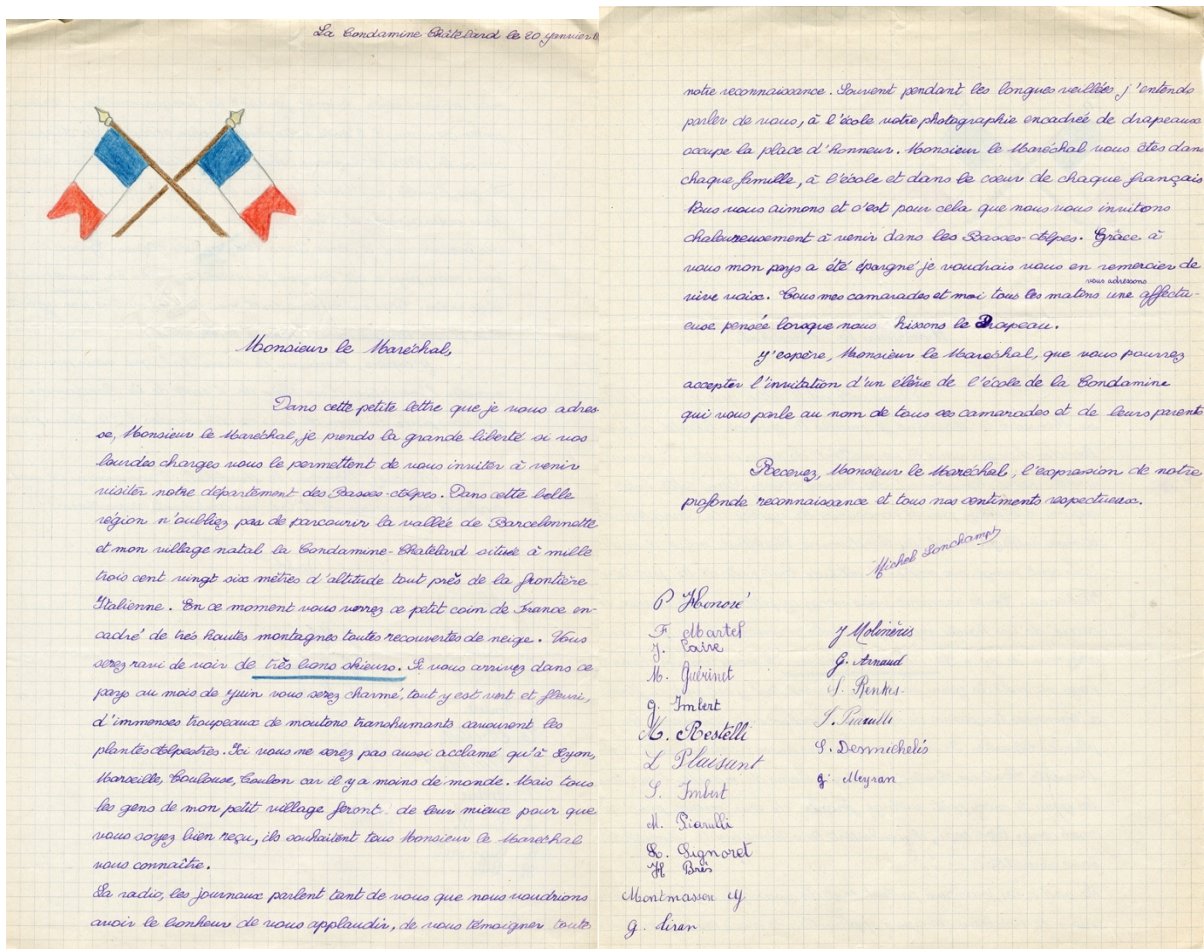 La Condamine Châtelard le 20 janvier
Monsieur le Maréchal,
Dans cette petite lettre que je vous adres
se, Monsieur le Maréchal, je prends la grande liberté si vos
lourdes charges vous le permettent de vous inviter à venir
visiter notre département des Basses-Alpes. Dans cette belle
région n'oubliez pas de parcourir la vallée de Barcelonnette
et mon village natal la Condamine-Chatelard située à mille
trois cent vingt six mètres d'altitude tout près de la frontière
Italienne. En ce moment vous verrez ce petit coin de France en-
cadré de très hautes montagnes toutes recouvertes de neige. Vous
serez ravi de voir de très bons skieurs. Si vous arrivez dans ce
pays au mois de juin vous serez charmé, tout y est vert et fleuri,
d'immenses troupeaux de moutons transhumants savourent les
plantes Alpestres. Ici vous ne serez pas aussi acclamé qu'à Lyon,
Marseille, Toulouse, Toulon car il y a moins de monde. Mais tous
les gens de mon petit village feront de leur mieux pour que
vous soyez bien reçu, ils souhaitent tous Monsieur le Maréchal
vous connaître.
La radio, les journaux parlent tant de vous que nous voudrions
avoir le bonheur de vous applaudir, de vous témoigner toute
notre reconnaissance. Souvent pendant les longues veillées j'entends
parler de vous, à l'école votre photographie encadrée de drapeaux
occupe la place d'honneur. Monsieur le Maréchal vous êtes dans
chaque famille, à l'école et dans le cœur de chaque français
Nous vous aimons et c'est pour cela que nous vous invitons
chaleureusement à venir dans les Basses-Alpes. Grâce à
vous mon pays a été épargné je voudrais vous en remercier de
vous adressons
vive voix. Tous mes camarades et moi tous les matins une affectu-
euse pensée lorsque nous hissons le Drapeau.
J'espère, Monsieur le Maréchal, que vous pourrez
accepter l'invitation d'un élève de l'école de la Condamine
qui vous parle au nom de tous ses camarades et de leurs parents
Recevez, Monsieur le Maréchal, l'expression de notre
profonde reconnaissance et tous nos sentiments respectueux.
Michel Lonchampt
P Honoré
F. Martel
J. Caire
M. Guérinet
G. Imbert
M. Restelli
L Plaisant
S. Imbert
M. Piarulli
L. Signoret
H Brès
Montmasson M
G. Liran
J Molinéris
G. Arnaud
S. Renkes
S. Piarulli
S. Demichelis
G. Meyran